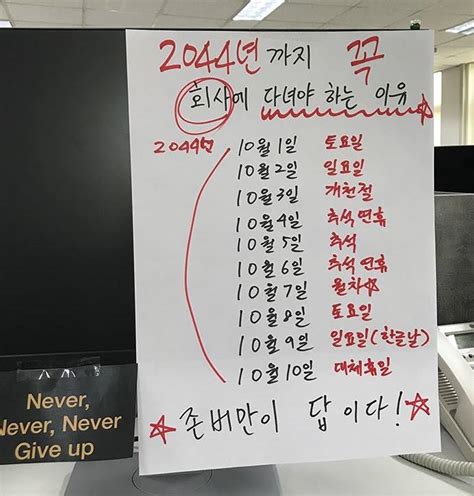 2044년까지 꼭
회사에 다녀야 하는 이유
2044년
10월 1일 토요일
10월 2일 일요일
10월 3일 개천절
10월 4일 추석연휴
10월 5일 추석
10월 6일 추석연휴
10월 7일 월차
10월 8일 토요일
10월 9일 일요일(한글날)
10월 10일 대체휴일
존버만이 답이다!
Never,
Never, Never
Give up